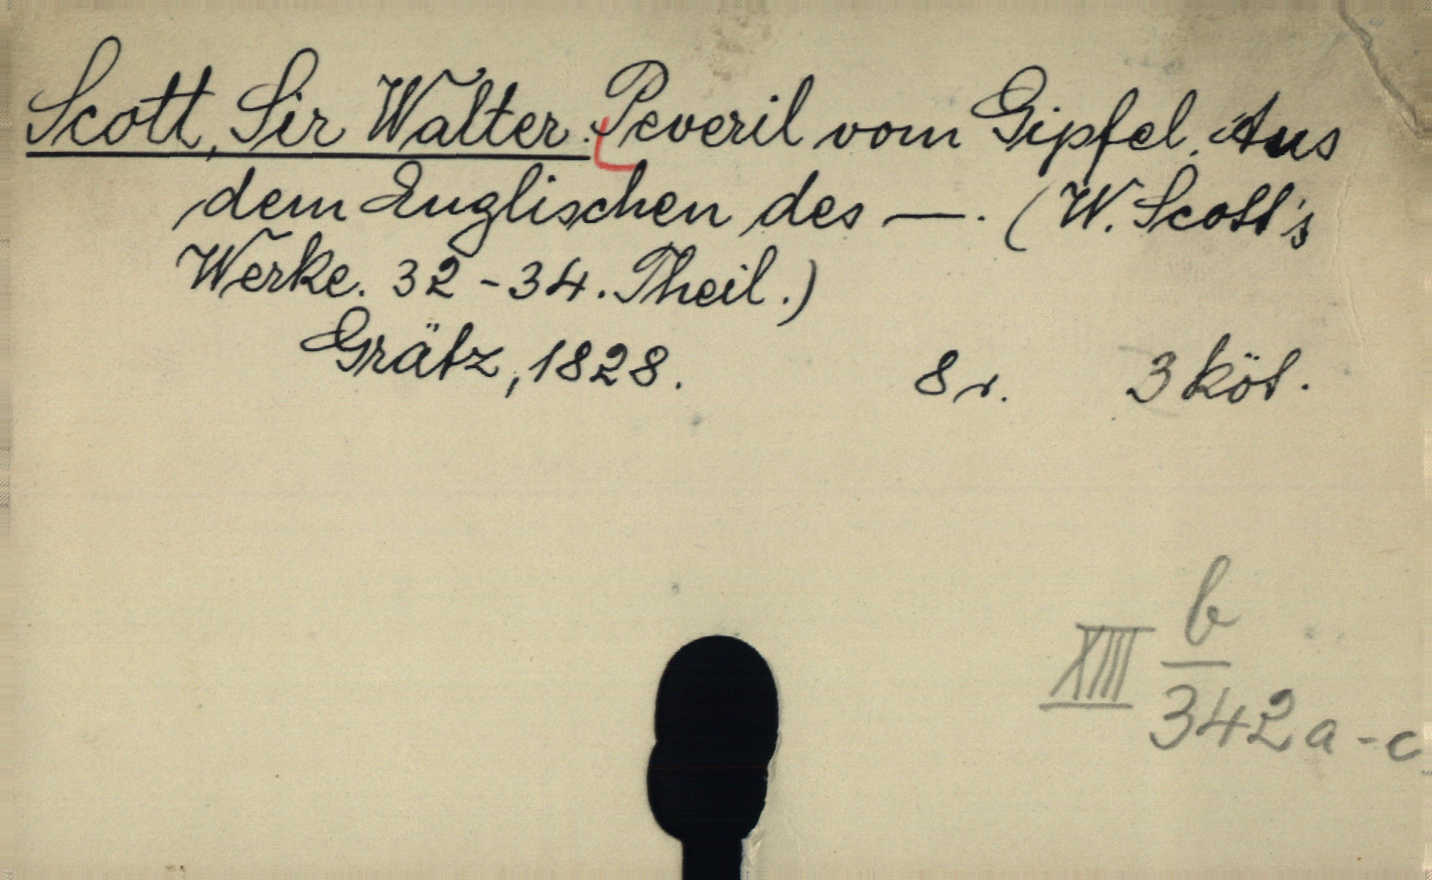 Scott, Sir Walter. Peveril vom Gipfel. Aus
dem Englischen des —. (W. Scott's
Werke. 32-34. Theil.)
Grätz, 1828. 8 r. 3 köt.
b
XIII
342 a-c